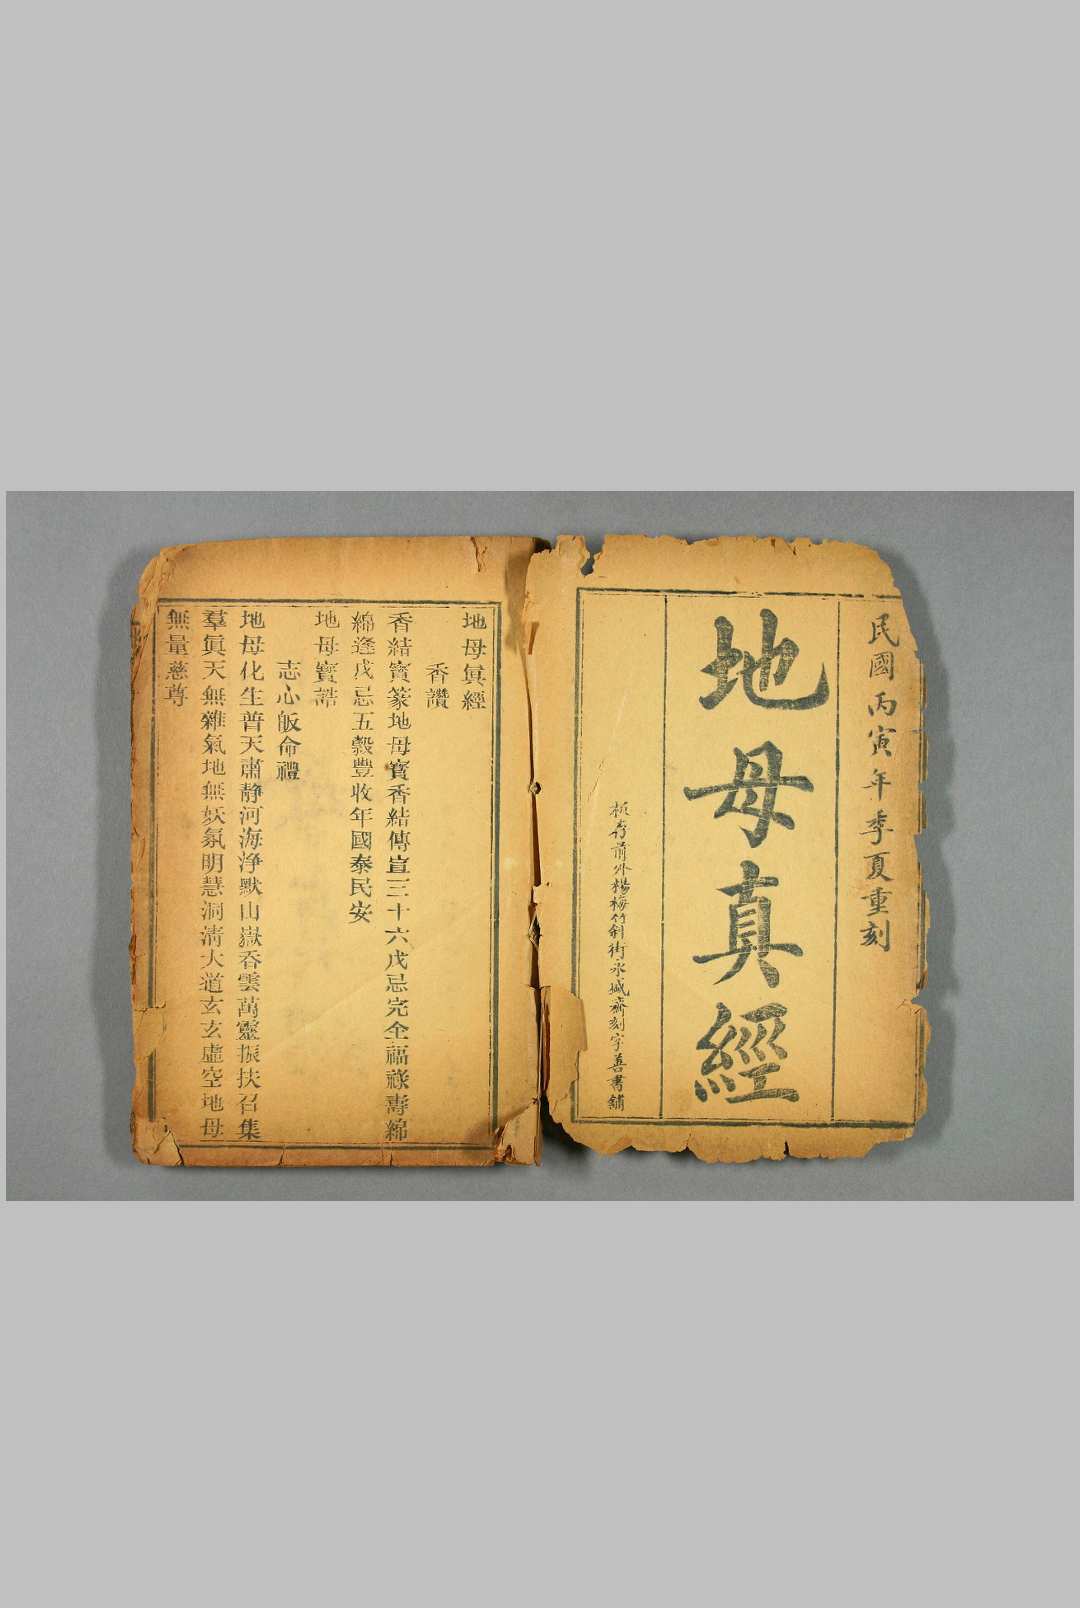 民國丙寅年季夏重刻
地母真經
板存前外楊梅竹斜街永盛齋刻字善書鋪
地母眞經
香讚
香結寳篆地母寳香結傳宣三十六戊忌完全福祿壽綿
綿逢戊忌五穀豐收年國泰民安
地母寳誥
志心皈命禮
地母化生普天肅静河海浄默山嶽吞雲萬靈振扶召集
羣眞天無雜氣地無妖氛明慧洞清大道玄玄虛空地母
無量慈尊